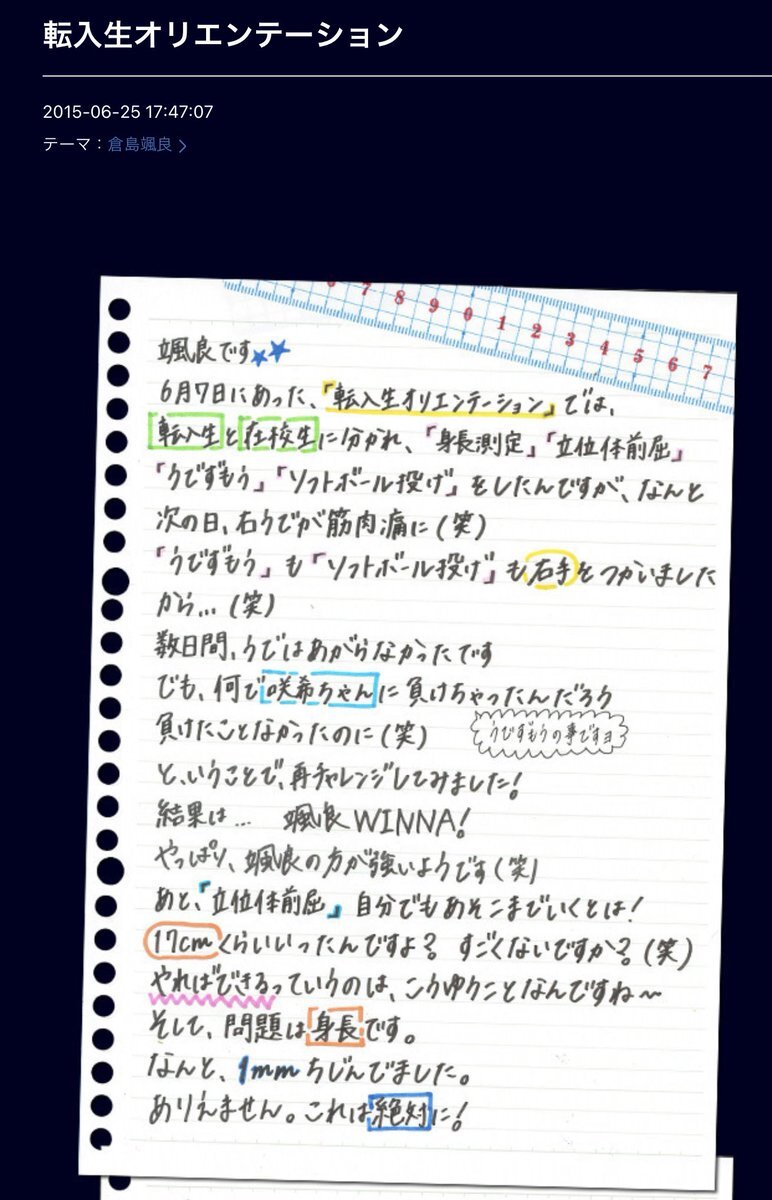 転入生オリエンテーション
2015-06-25 17:47:07
テーマ：倉島颯良 >
6 7 8 9 0 1 2 3 4 5 6 7
颯良です★★
6月7日にあった、『転入生オリエンテーション』では、
転入生と在校生に分かれ、「身長測定」「立位体前屈」
「うでずもう」「ソフトボール投げ」をしたんですが、なんと
次の日、右うでが筋肉痛に(笑)
「うでずもう」も「ソフトボール投げ」も右手をつかいました
から…(笑)
数日間、うではあがらなかったです
でも、何で咲希ちゃんに負けちゃったんだろう
負けたことなかったのに(笑)
うでずもうの事ですヨ
と、いうことで、再チャレンジしてみました!
結果は… 颯良WINNA!
やっぱり、颯良の方が強いようです(笑)
あと、『立位体前屈』自分でもあそこまでいくとは!
17cmくらいいったんですよ? すごくないですか?(笑)
やればできるっていうのは、こうゆうことなんですね〜
そして、問題は身長です。
なんと、1mmちじんでました。
ありえません。これは絶対に!